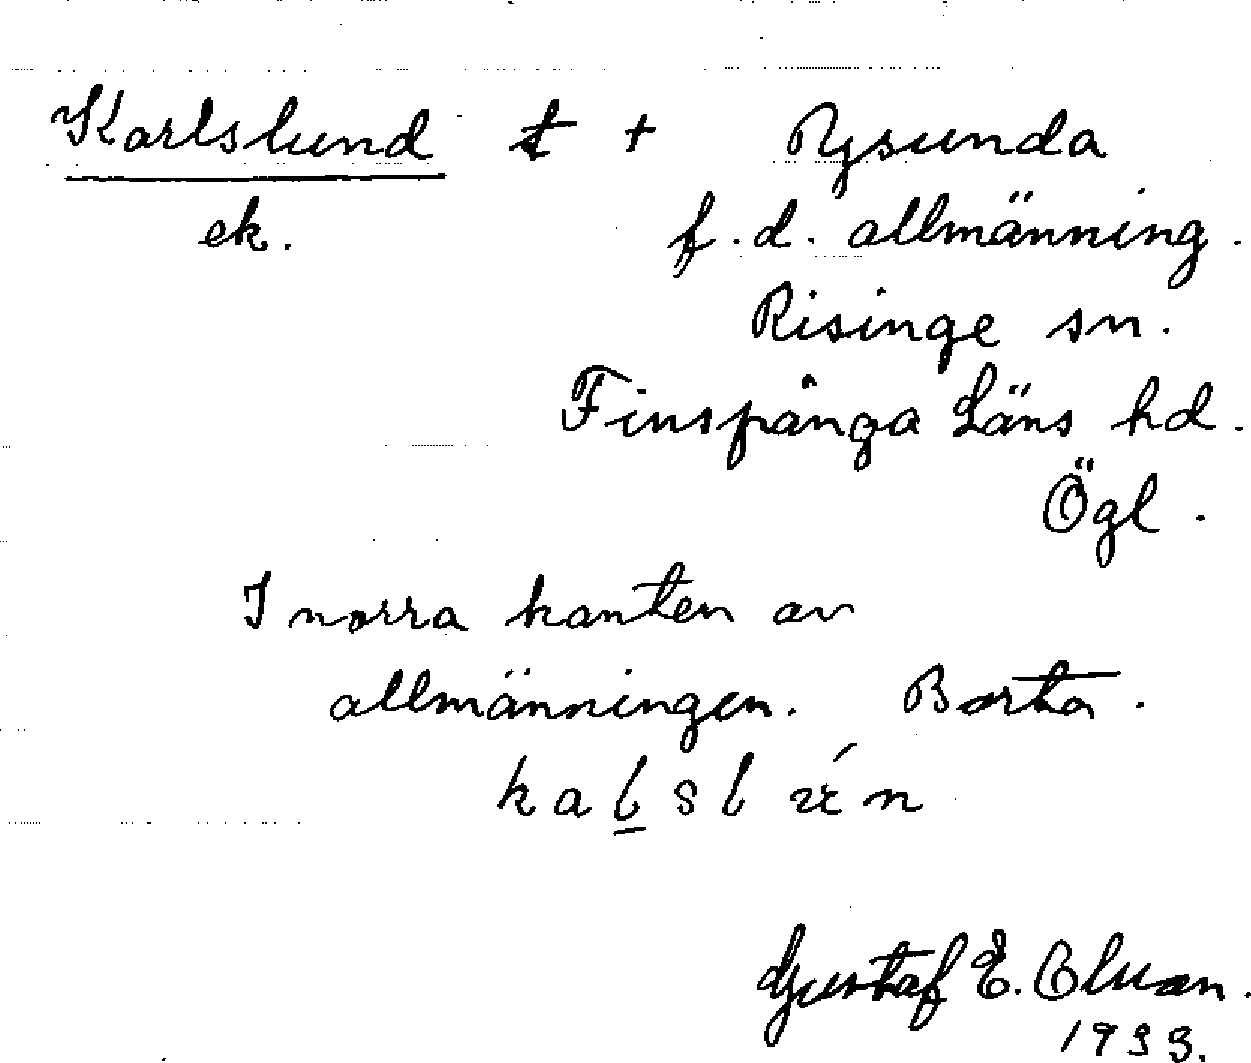 Karlslund t + Rysunda
ek. f.d. allmänning.
Risinge sn.
Finspånga Läns hd.
Ögl.
I norra kanten av
allmänningen. Borta.
Gustaf E.
1933.